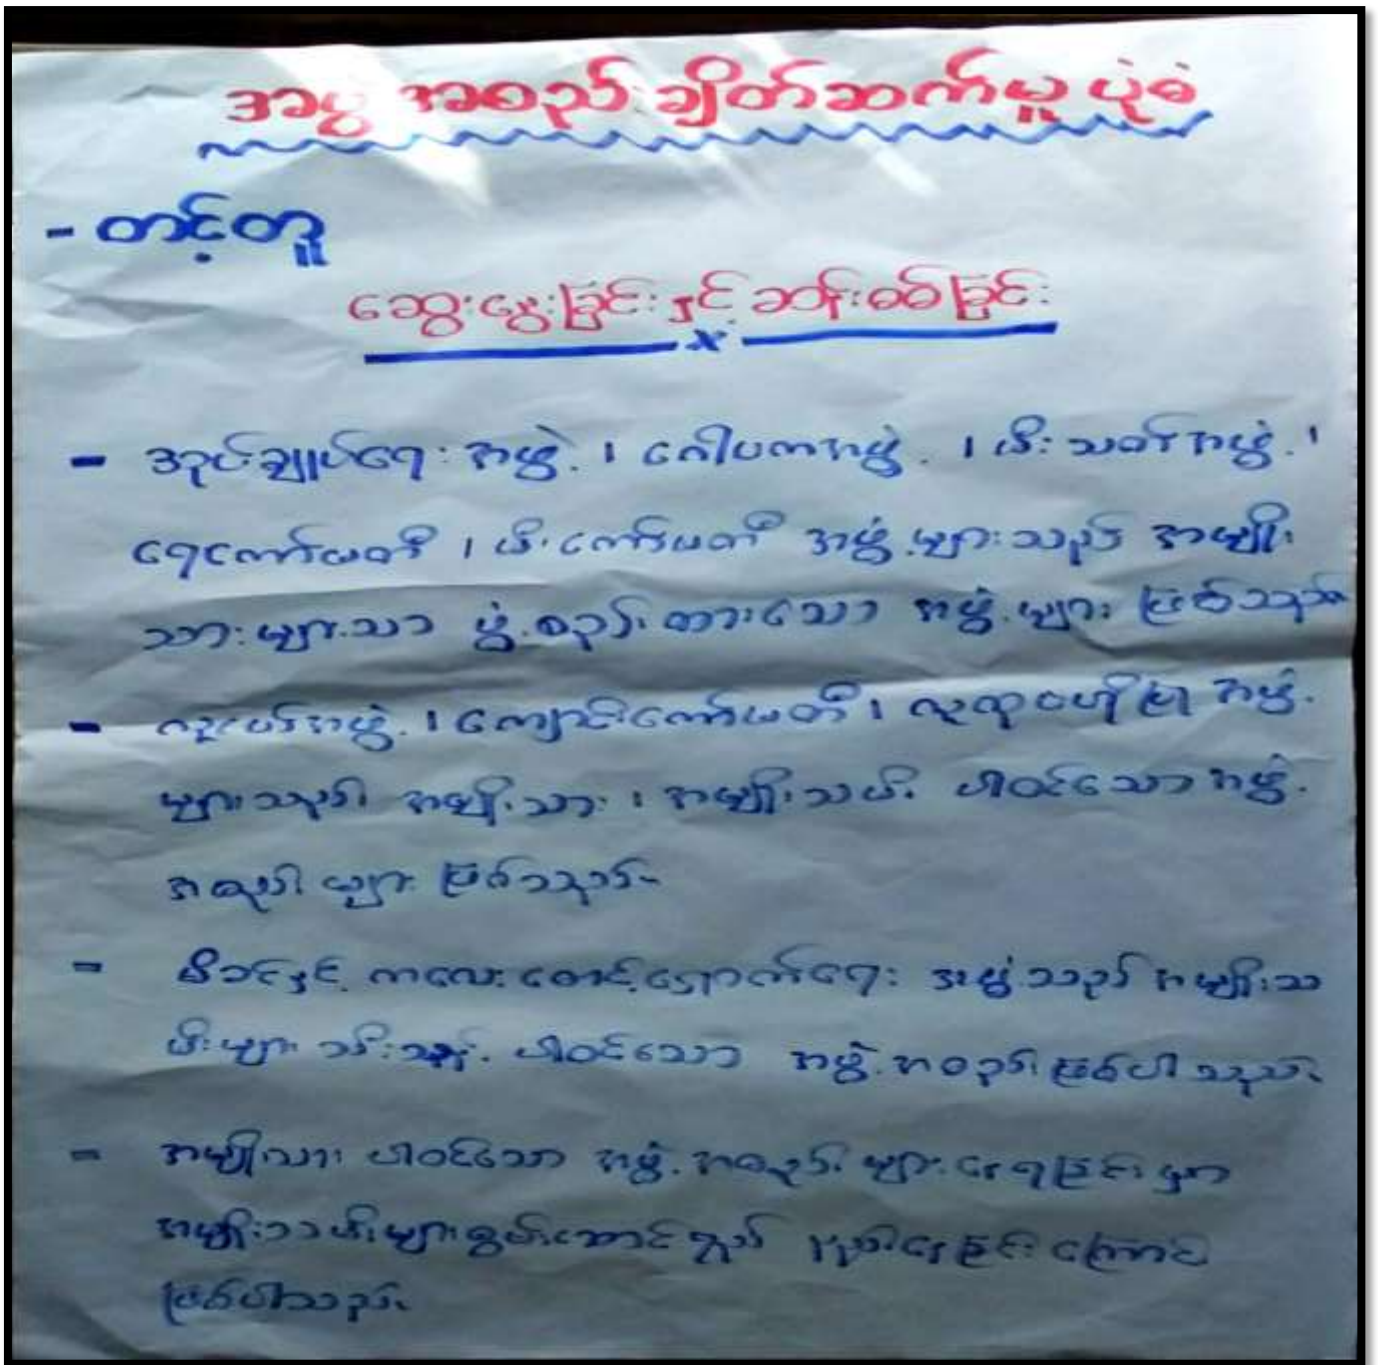 အဖွဲ့အစည်းချိတ်ဆက်မှုပုံစံ
- တင့်တူ
ဆွေးနွေးခြင်းနှင့် ဆန်းစစ်ခြင်း
- အုပ်ချုပ်ရေးအဖွဲ့၊ ဂေါပကအဖွဲ့၊ မီးသတ်အဖွဲ့၊
ရေကော်မတီ၊ မီးကော်မတီ အဖွဲ့များသည် အမျိုး
သားများသာ ဖွဲ့စည်းထားသော အဖွဲ့များ ဖြစ်သည်
- လူငယ်အဖွဲ့၊ ကျောင်းကော်မတီ၊ လူထုဗဟိုပြု အဖွဲ့
များသည် အမျိုးသား၊ အမျိုးသမီး ပါဝင်သော အဖွဲ့
အစည်းများ ဖြစ်သည်။
- မိခင်နှင့် ကလေးစောင့်ရှောက်ရေး အဖွဲ့သည် အမျိုးသ
မီးများ သီးသန့် ပါဝင်သော အဖွဲ့အစည်းဖြစ်ပါသည်။
- အမျိုးသား ပါဝင်သော အဖွဲ့အစည်းများနေရခြင်းမှာ
အမျိုးသမီးများစွမ်းဆောင်ရည် နည်းနေခြင်းကြောင့်
ဖြစ်ပါသည်။